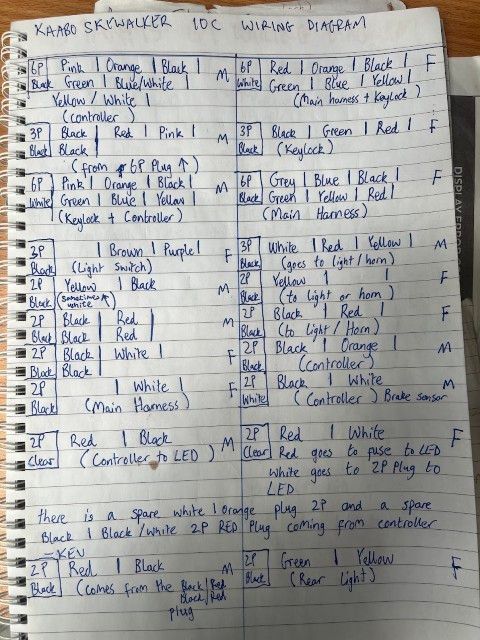 KAABO SKYWALKER 10C WIRING DIAGRAM
6P Black Pink | Orange | Black | M
Green | Blue/White |
Yellow / White |
(Controller)
6P White Red | Orange | Black | F
Green | Blue | Yellow |
(Main harness + Keylock)
3P Black Black | Red | Pink | M
Black |
(from 6P Plug ↑)
3P Black Black | Green | Red | F
(Keylock)
6P White Pink | Orange | Black | M
Green | Blue | Yellow |
(Keylock + Controller)
6P Black Grey | Blue | Black | F
Green | Yellow | Red |
(Main Harness)
3P Black | Brown | Purple | F
(Light Switch)
3P Black White | Red | Yellow | M
(goes to light / horn)
2P Black Yellow | Black M
(Sometimes white ↑)
2P Black Yellow | | F
(to light or horn)
2P Black Black | Red | M
Black | Red |
2P Black Black | Red | F
(to light / Horn)
2P Black Black | White | F
Black |
2P Black Black | Orange | M
(Controller)
2P Black | White | F
(Main Harness)
2P White Black | White M
(Controller) Brake sensor
2P Clear Red | Black M
(Controller to LED)
2P Clear Red | White F
Red goes to fuse to LED
White goes to 2P Plug to
LED
there is a spare white | Orange plug 2P and a spare
Black | Black/White 2P RED Plug coming from controller
- KEV
2P Black Red | Black M
(comes from the Black/Red
Black/Red
plug
2P Black Green | Yellow F
(Rear Light)
DISPLAY